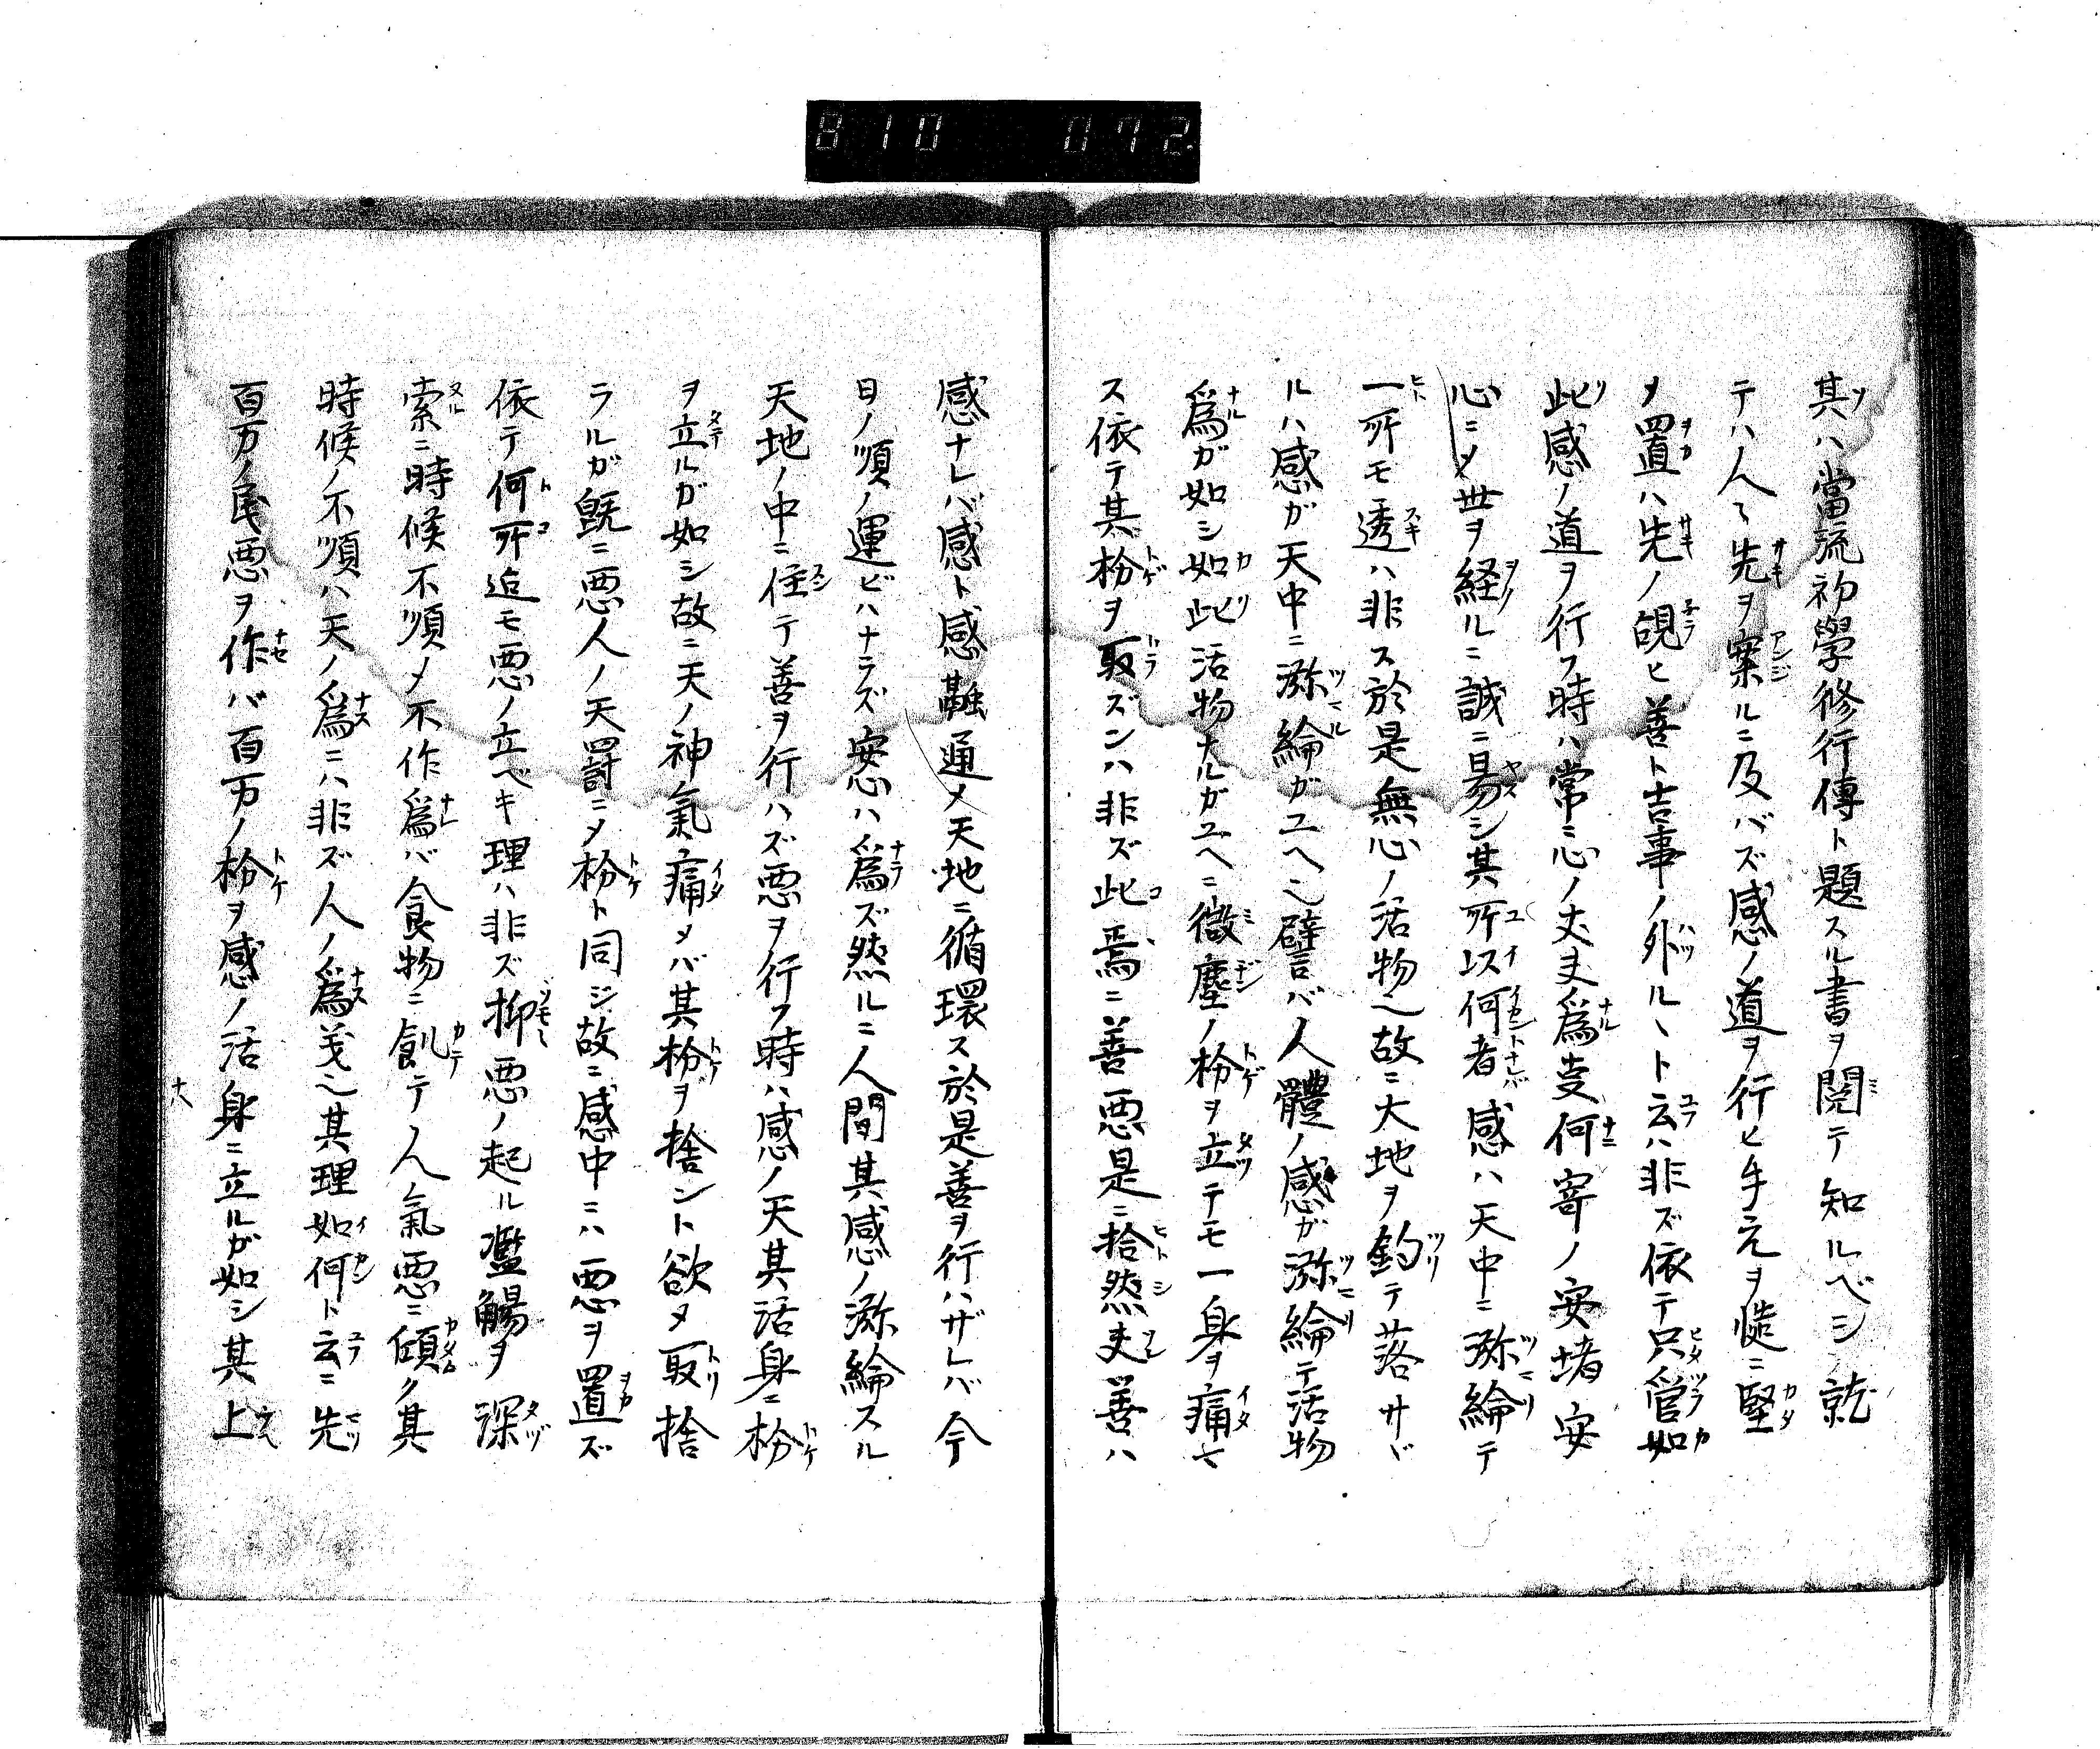 810 072.
其ハ當流初學修行傳ト題スル書ヲ閲テ知ルベシ就
テハ人々先ヲ案ルニ及バズ感ノ道ヲ行ヒ手元ヲ慥ニ堅
メ置ハ先ノ覬ヒ善ト吉事ノ外ルヽト云ハ非ズ依テ只管如
此感ノ道ヲ行フ時ハ常ニ心ノ丈夫為叓何寄ノ安堵安
心ニメ世ヲ経ルニ誠ニ易シ其所以何者感ハ天中ニ弥綸テ
一所モ透ハ非ス於是無心ノ活物也故ニ大地ヲ釣テ落サヾ
ルハ感ガ天中ニ弥綸ガユヘ也譬バ人體ノ感ガ弥綸テ活物
為ガ如シ如此活物ナルガユヘニ微塵ノ枌ヲ立テモ一身ヲ痛
ス依テ其枌ヲ取ズンハ非ズ此焉ニ善悪是ニ拾然夫善ハ
感ナレバ感ト感融通メ天地ニ循環ス於是善ヲ行ハザレバ今
日ノ順ノ運ビハナラズ安心ハ為ズ然ルニ人間其感ノ弥綸スル
天地ノ中ニ住テ善ヲ行ハズ悪ヲ行フ時ハ感ノ天其活身ニ枌
ヲ立ルガ如シ故ニ天ノ神氣痛メバ其枌ヲ捨ント欲メ取捨
ラルガ既ニ悪人ノ天罰ニメ枌ト同ジ故ニ感中ニハ悪ヲ置ズ
依テ何所迄モ悪ノ立ベキ理ハ非ズ抑悪ノ起ル濫觴ヲ深
索ニ時候不順メ不作為バ食物ニ飢テ人氣悪ニ傾ク其
時候ノ不順ハ天ノ為ニハ非ズ人ノ為義也其理如何ト云ニ先
百万ノ民悪ヲ作バ百万ノ枌ヲ感ノ活身ニ立ルガ如シ其上